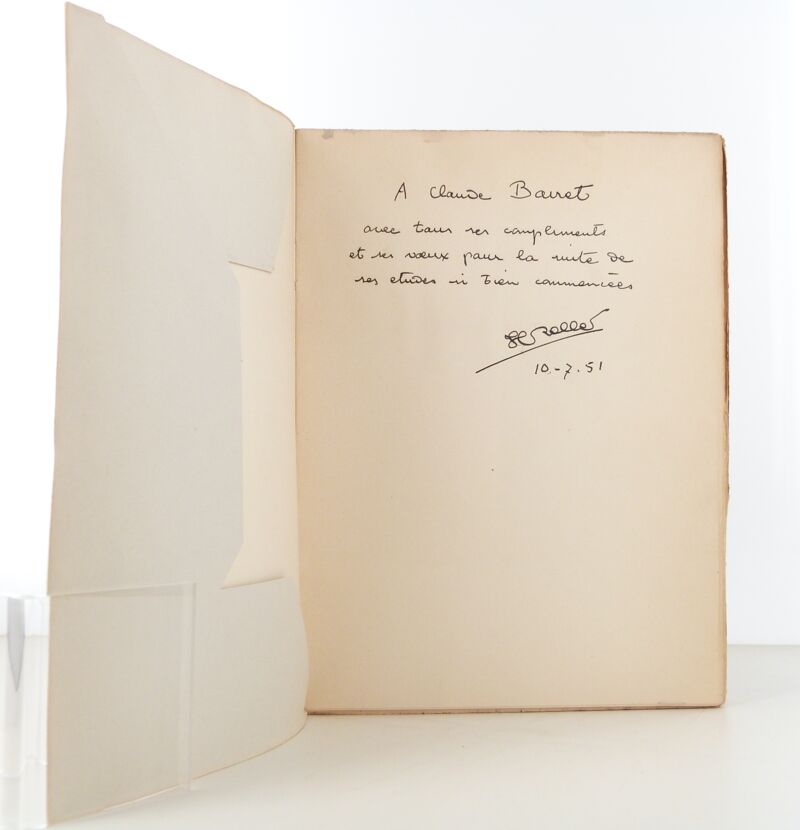 A Claude Bairet
avec tous ses compliments
et ses vœux pour la suite de
ses etudes si bien commencées
10-7.51